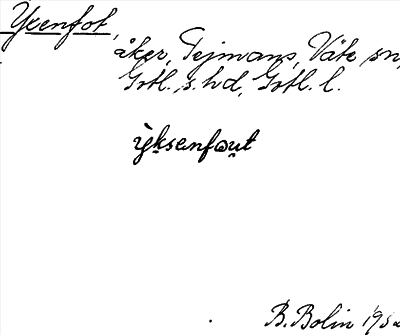 Yxenfot,
åker, Tejmans, Väte sn,
Gotl. s. hd, Gotl. l.
ỳksenfout
B. Bolin